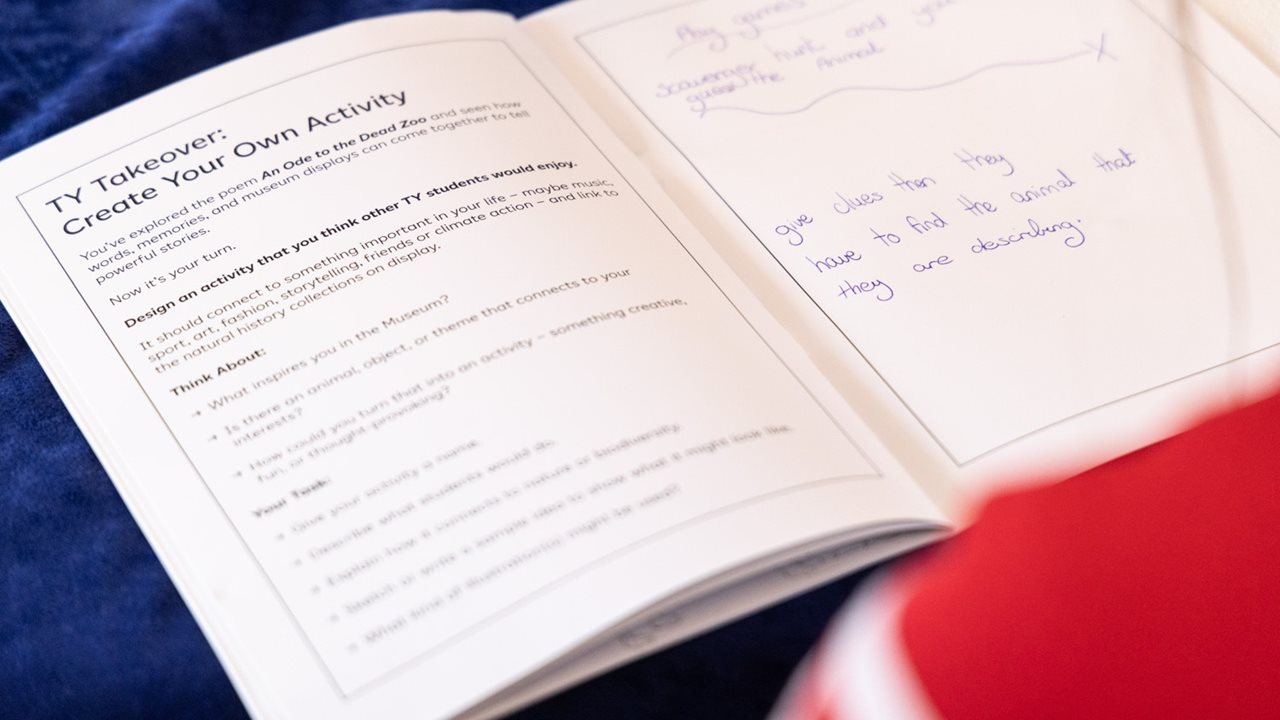 TY Takeover:
Create Your Own Activity
You've explored the poem An Ode to the Dead Zoo and seen how
words, memories, and museum displays can come together to tell
powerful stories.
Now it's your turn.
Design an activity that you think other TY students would enjoy.
It should connect to something important in your life – maybe music,
sport, art, fashion, storytelling, friends or climate action – and link to
the natural history collections on display.
Think About:
→ What inspires you in the Museum?
→ Is there an animal, object, or theme that connects to your
interests?
→ How could you turn that into an activity – something creative,
fun, or thought-provoking?
Your Task:
→ Give your activity a name.
→ Describe what students would do.
→ Explain how it connects to nature or biodiversity.
→ Sketch or write a sample idea to show what it might look like.
→ What kind of illustration(s) might be used?
Play games
scavenger hunt and
guess the Animal
give clues then they
have to find the animal that
they are describing.